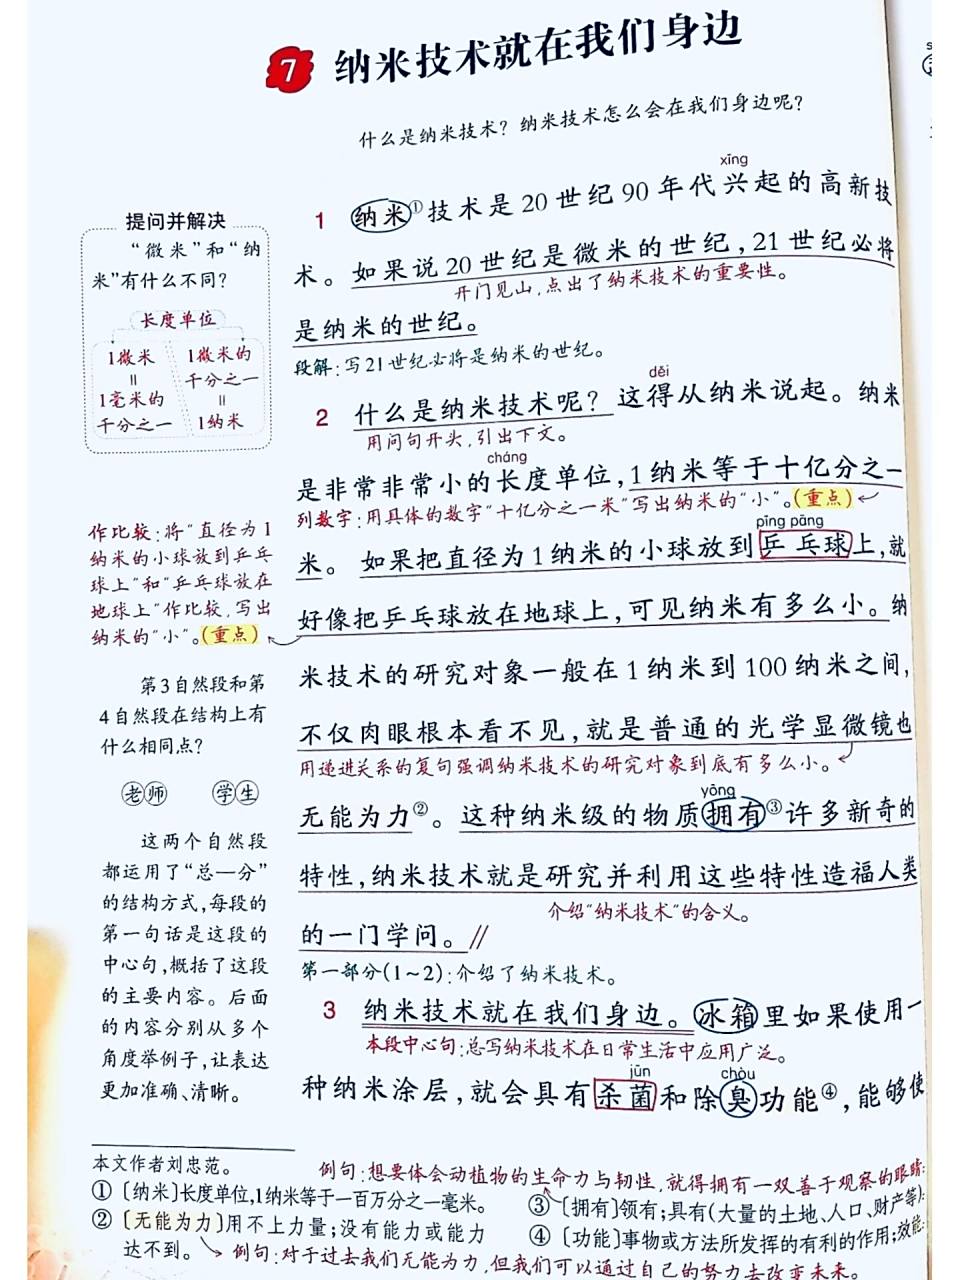 7 纳米技术就在我们身边
什么是纳米技术？纳米技术怎么会在我们身边呢？
xīng
1 纳米①技术是20世纪90年代兴起的高新技
术。如果说20世纪是微米的世纪，21世纪必将
开门见山，点出了纳米技术的重要性。
是纳米的世纪。
段解：写21世纪必将是纳米的世纪。
děi
2 什么是纳米技术呢？这得从纳米说起。纳米
用问句开头，引出下文。
cháng
是非常非常小的长度单位，1纳米等于十亿分之一
列数字：用具体的数字“十亿分之一米”写出纳米的“小”。（重点）
pīng pāng
米。如果把直径为1纳米的小球放到乒乓球上，就
好像把乒乓球放在地球上，可见纳米有多么小。纳
米技术的研究对象一般在1纳米到100纳米之间，
不仅肉眼根本看不见，就是普通的光学显微镜也
用递进关系的复句强调纳米技术的研究对象到底有多么小。
yōng
无能为力②。这种纳米级的物质拥有③许多新奇的
特性，纳米技术就是研究并利用这些特性造福人类
介绍“纳米技术”的含义。
的一门学问。//
第一部分（1~2）：介绍了纳米技术。
3 纳米技术就在我们身边。冰箱里如果使用一
本段中心句：总写纳米技术在日常生活中应用广泛。
jūn chòu
种纳米涂层，就会具有杀菌和除臭功能④，能够使
提问并解决
“微米”和“纳
米”有什么不同？
长度单位
1微米
=
1毫米的
千分之一
1微米的
千分之一
=
1纳米
作比较：将“直径为1
纳米的小球放到乒乓
球上”和“乒乓球放在
地球上”作比较，写出
纳米的“小”。（重点）
第3自然段和第
4自然段在结构上有
什么相同点？
老师 学生
这两个自然段
都运用了“总—分”
的结构方式，每段的
第一句话是这段的
中心句，概括了这段
的主要内容。后面
的内容分别从多个
角度举例子，让表达
更加准确、清晰。
本文作者刘忠范。
①〔纳米〕长度单位，1纳米等于一百万分之一毫米。
②〔无能为力〕用不上力量；没有能力或能力
达不到。
例句：对于过去我们无能为力，但我们可以通过自己的努力去改变未来。
例句：想要体会动植物的生命力与韧性，就得拥有一双善于观察的眼睛。
③〔拥有〕领有；具有（大量的土地、人口、财产等）。
④〔功能〕事物或方法所发挥的有利的作用；效能。